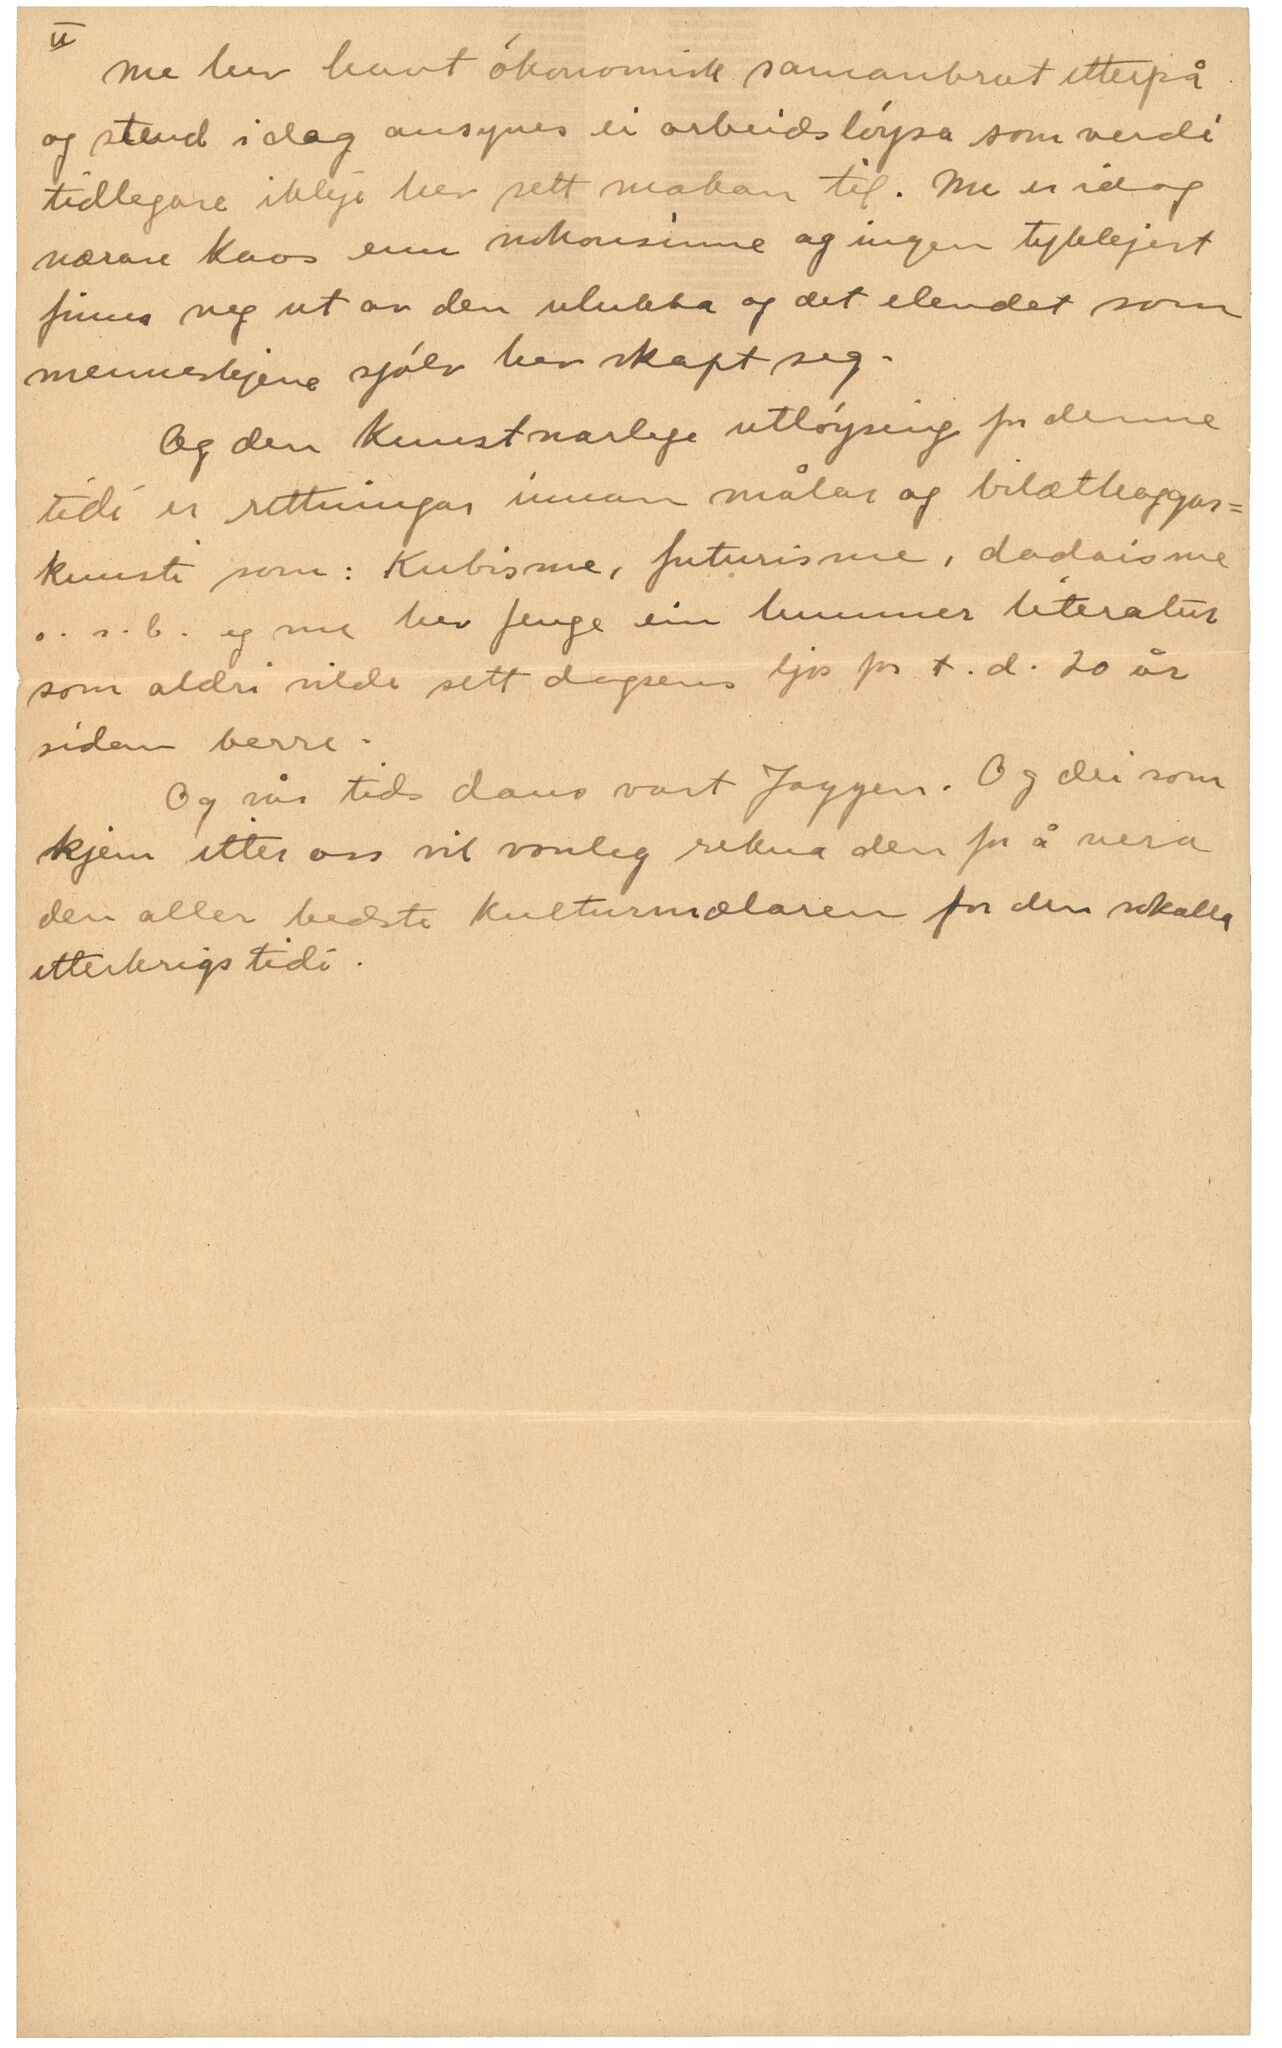 II
Me hev havt ókonomisk samanbrot etterpå
og stend i dag ansynes ei arbeidslóysa som verdi
tidlegare ikkje hev sett makan til. Me er idag
nærare kaos enn nokonsinne og ingen tykkjest
finna veg ut av den ulukka og det elendet som
menneskjene sjólv hev skapt seg.
Og den kunstnarlege utlóysing for denne
tidi er rettningar innan målar og bilæthoggar=
kunsti som: Kubisme, futurisme, dadaisme
o. s. b. og me hev fenge ein hummer literatur
som aldri vilde sett dagsens ljos for t. d. 20 år
sidan berre.
Og vår tids dans vart Jazzen. Og dei som
kjem etter oss vil vonleg rekna den for å vera
den aller bedste kulturmælaren for den sokalla
etterkrigstidi.